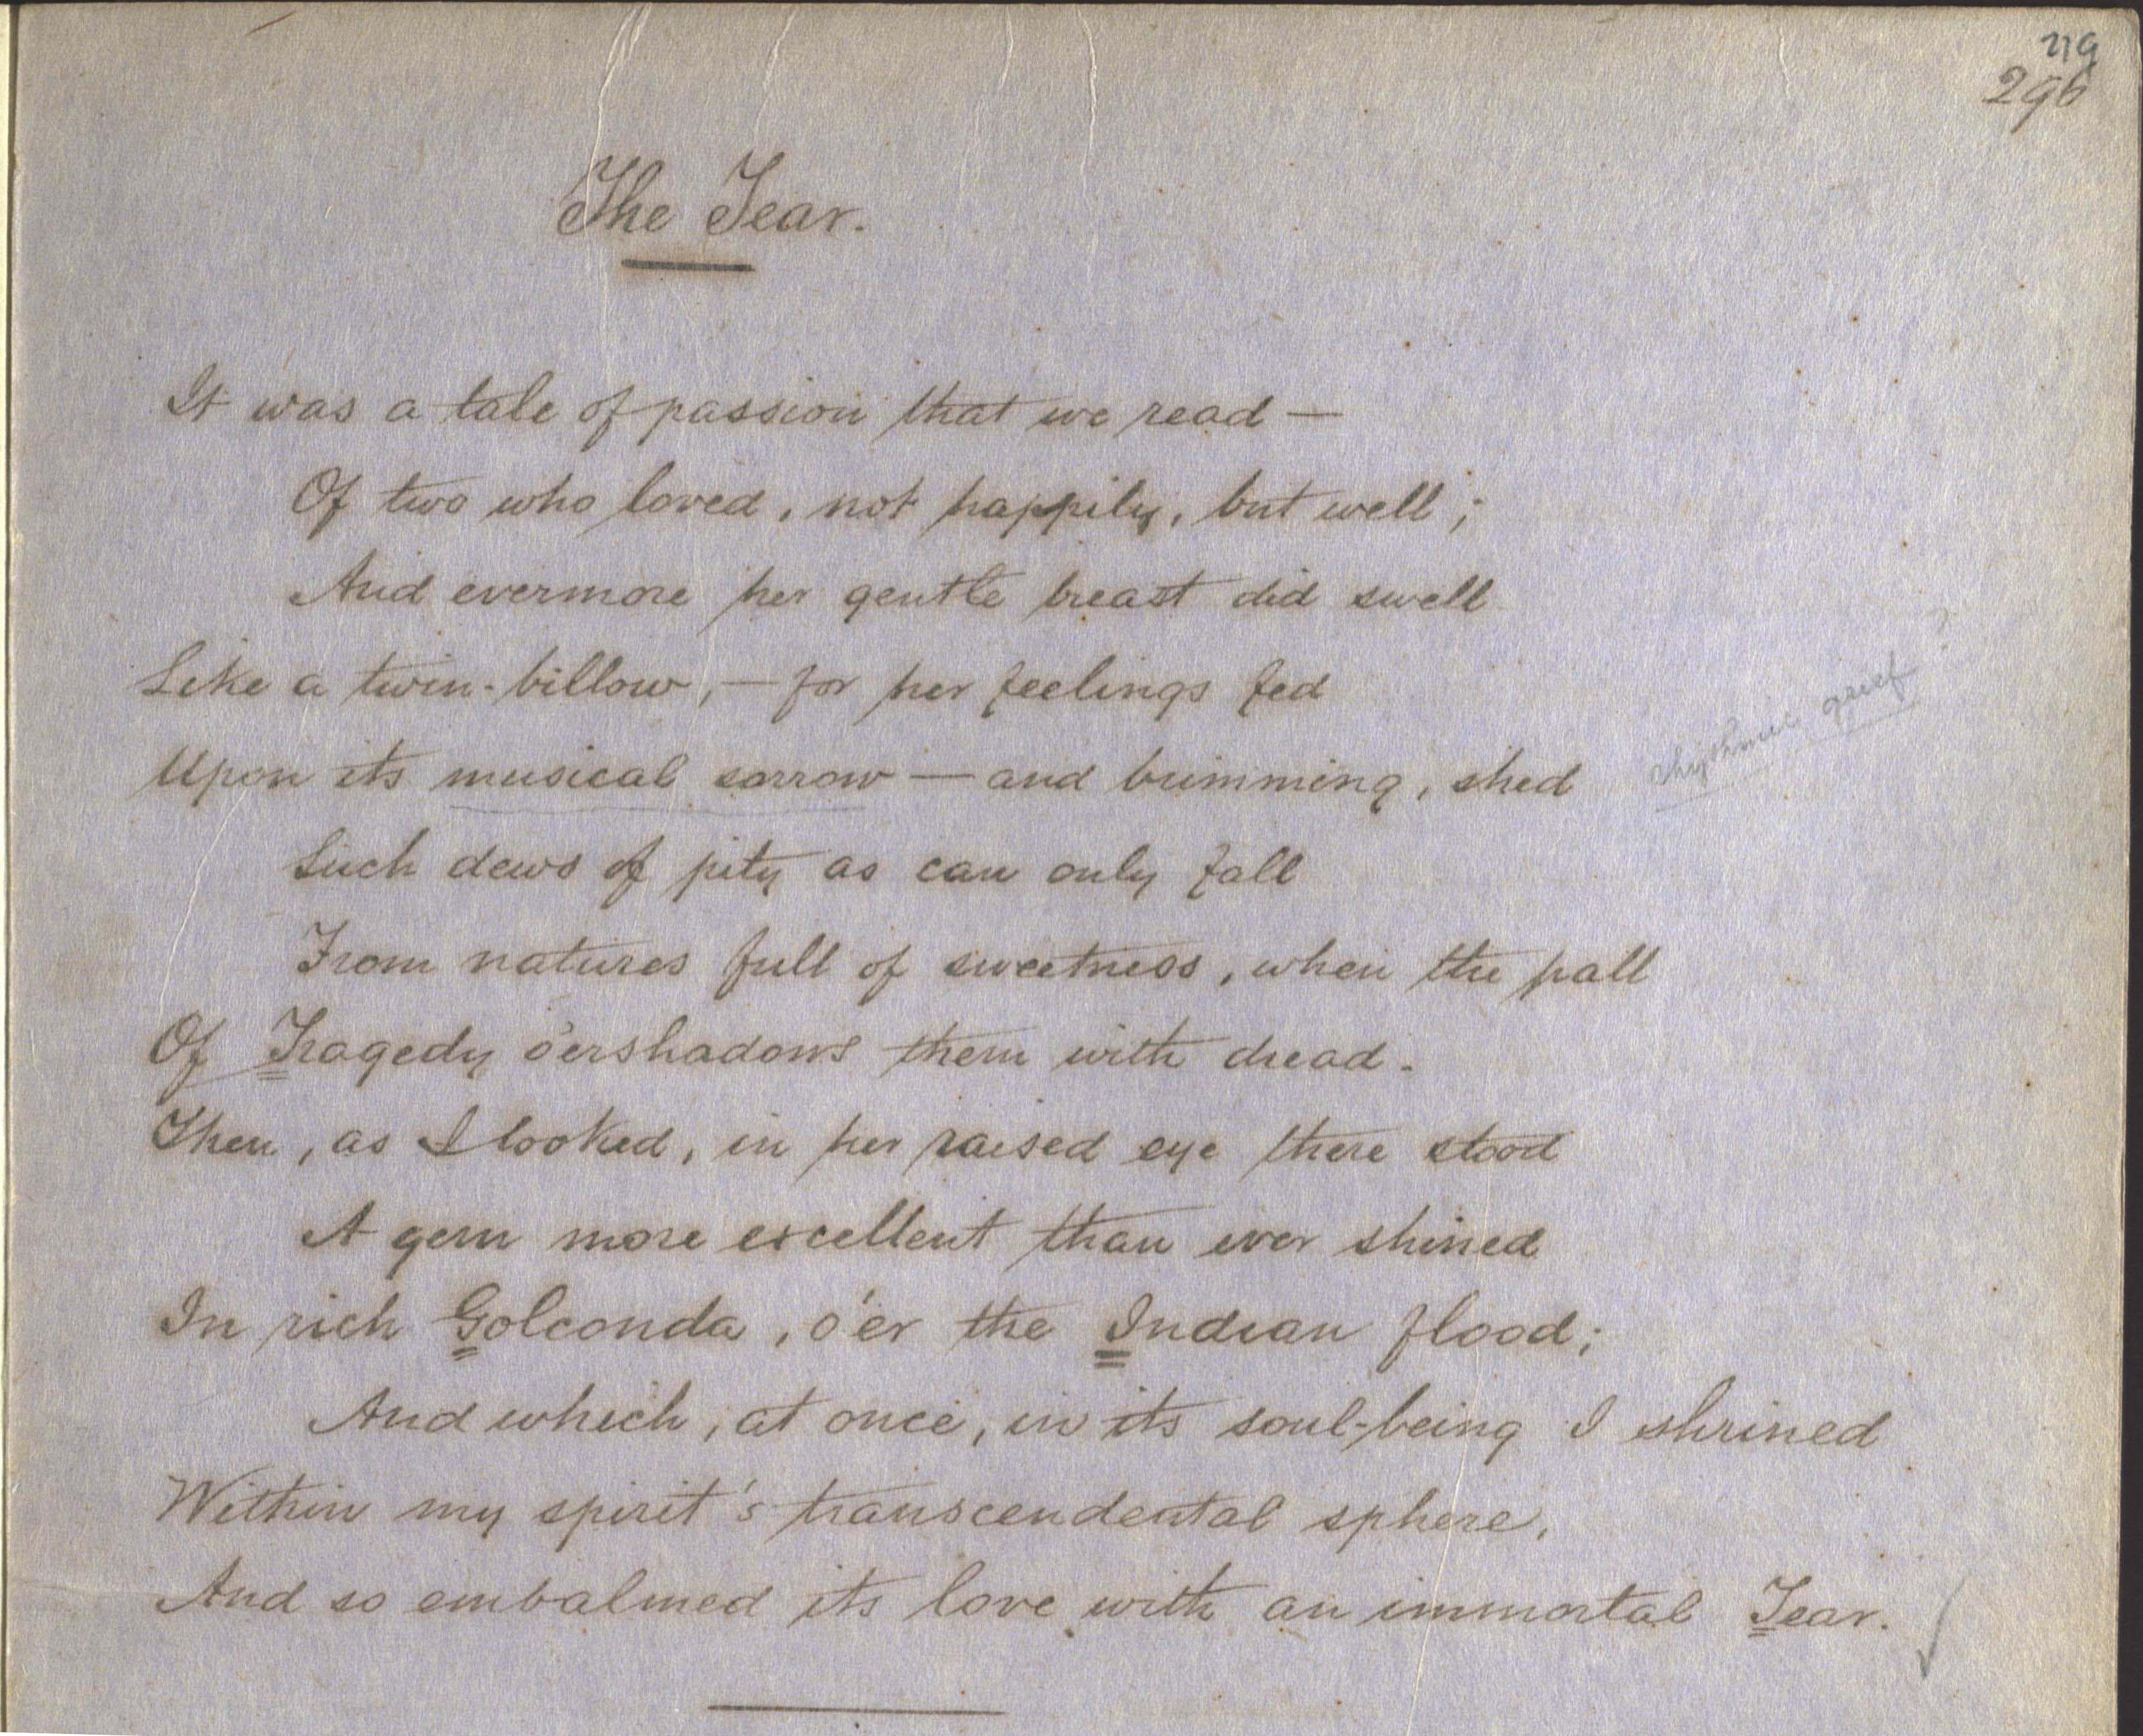 219
296
The Tear.
It was a tale of passion that we read —
Of two who loved, not happily, but well;
And evermore her gentle breast did swell
Like a twin-billow, — for her feelings fed
Upon its musical sorrow — and brimming, shed
rhythmic grief ?
Such dews of pity as can only fall
From natures full of sweetness, when the pall
Of Tragedy o'ershadows them with dread.
Then, as I looked, in her raised eye there stood
A gem more excellent than ever shined
In rich Golconda, o'er the Indian flood;
And which, at once, in its soul-being I shrined
Within my spirit's transcendental sphere,
And so embalmed its love with an immortal Tear.